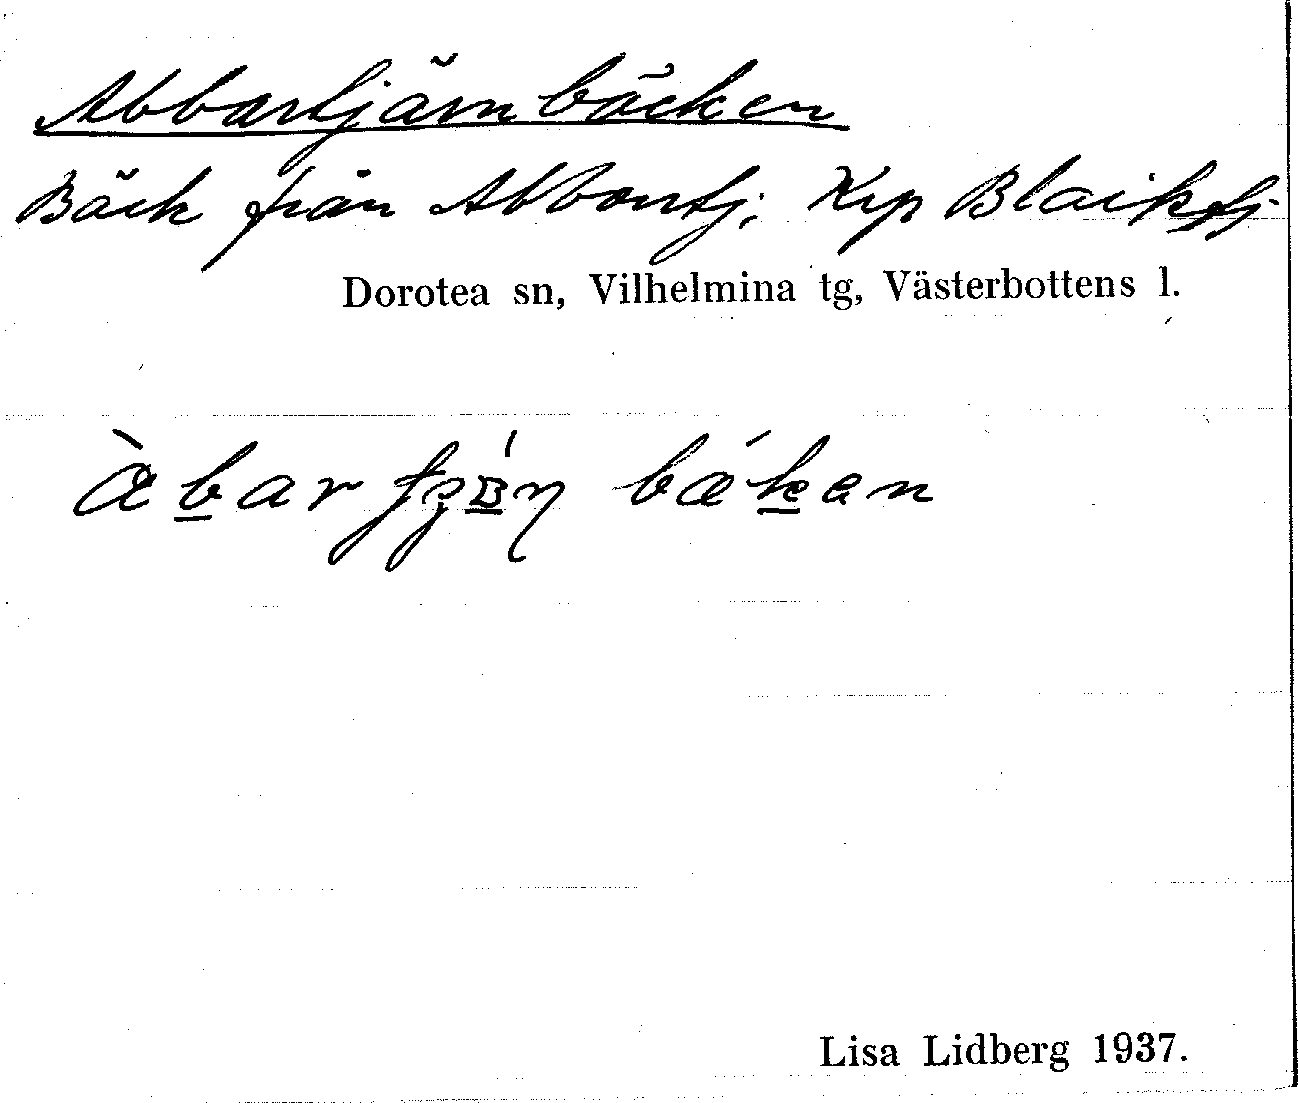 Abbortjärnbäcken
Bäck från Abbortj; Krp Blaiksj.
Dorotea sn, Vilhelmina tg, Västerbottens l.
bækan
Lisa Lidberg 1937.